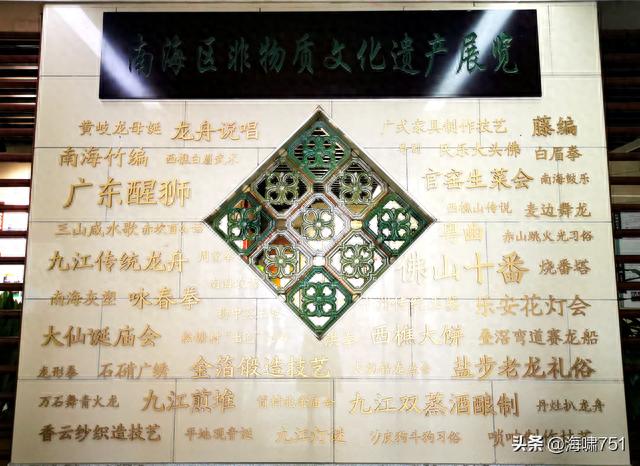 南海区非物质文化遗产展览
黄岐龙母诞 龙舟说唱 广式家具制作技艺 藤编
南海竹编 西樵白眉武术 乐安大头佛 白眉拳
广东醒狮 官窑生菜会 南海娱乐
西樵山传说 麦边舞龙
三山咸水歌 粤曲 赤山跳火光习俗
九江传统龙舟 佛山十番 烧番塔
南海灰塑 咏春拳 乐安花灯会
大仙诞庙会 西樵大饼 叠滘弯道赛龙船
龙形拳 石硝广绣 金箔锻造技艺 盐步老龙礼俗
万石舞青火龙 九江煎堆 九江双蒸酒酿制 丹灶扒龙舟
香云纱织造技艺 平地观音诞 九江灯谜 唢呐制作技艺
头条 @海啸751